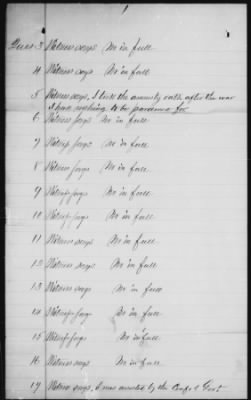 1
Ques 3 Witness says No in full
4 Witness says No in full
5 Witness says, I took the amnesty oath after the war
I have nothing to be pardoned for
6 Witness says No in full
7 Witness says No in full
8 Witness says No in full
9 Witness says No in full
10 Witness says No in full
11 Witness says No in full
12 Witness says No in full
13 Witness says No in full
14 Witness says No in full
15 Witness says No in full
16 Witness says No in full
17 Witness says, I was arrested by the Confed Govt